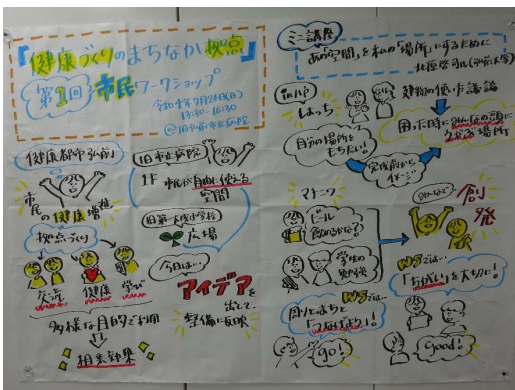 『健康づくりのまちなか拠点』
第1回 市民ワークショップ
令和4年9月24日(日)
13:30-16:30
@旧弘前市立病院
健康都市弘前
市民の健康増進
拠点づくり
交流 健康 学び
多様な目的で利用
相乗効果
旧市立病院
1F 市民が自由に使える
空間
旧第一大成小学校
広場
今日は…
アイデアを
出して
整備に反映
ミニ講座
あの「空間」を私の「場所」にするために
北原啓司(弘前大学)
in八戸
はっち
建物の使い方議論
自分の場所を
もちたい!
完成前から
イメージ
困った時にみんなの頭に
うかぶ場所
マチナカ
ビール
飲めるかな?
学生の
勉強
みんなで
創発
WSでは…
「ちがい」を大切に!
周りとまちと
WSでは…
「つながり」!
go!
Good!